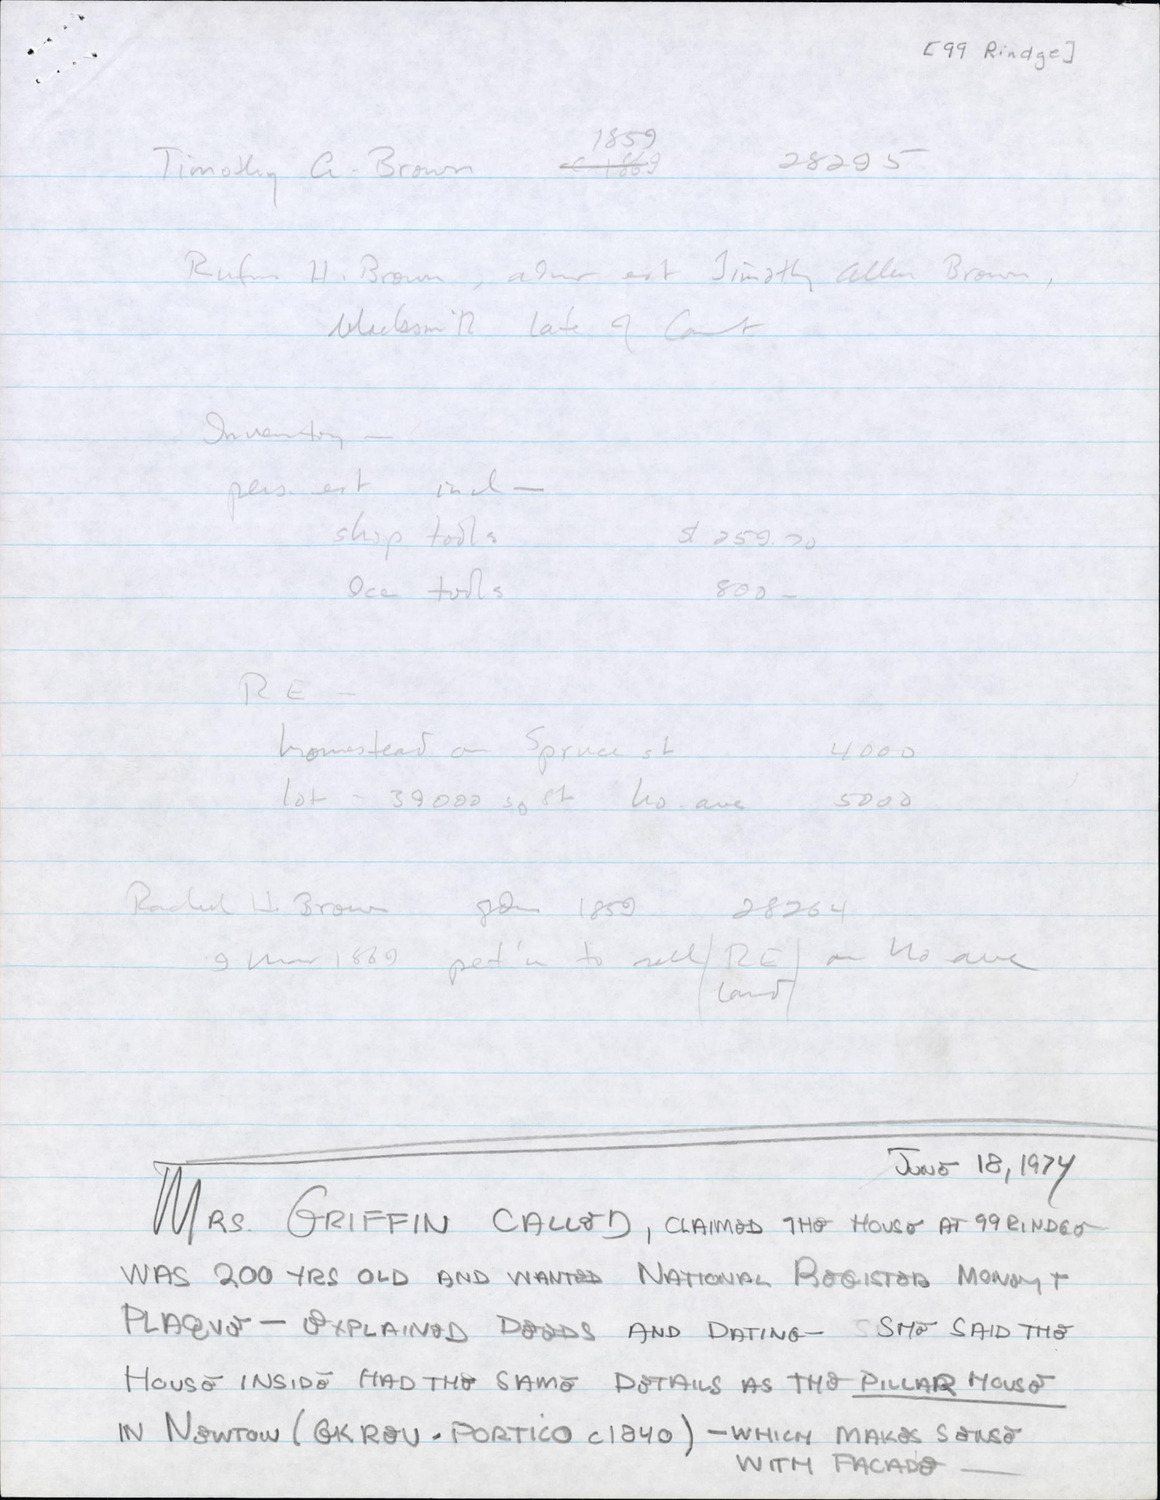 [99 Rindge]
1859
Timothy A. Brown c 1869 28295
Rufus H. Brown, admr est Timothy Allen Brown,
blacksmith late of Camb
Inventory —
pers. est incl —
shop tools $ 259.20
Ice tools 800 —
R E —
homestead on Spruce st 4000
lot - 39000 sq ft No ave 5000
Rachel H. Brown gdn 1859 28264
9 Mar 1869 pet'n to sell RE on No ave
land
June 18, 1974
MRS. GRIFFIN CALLED, CLAIMED THE HOUSE AT 99 RINDGE
WAS 200 YRS OLD AND WANTED NATIONAL REGISTER MONEY +
PLAQUE — EXPLAINED DEEDS AND DATING — SHE SAID THE
HOUSE INSIDE HAD THE SAME DETAILS AS THE PILLAR HOUSE
IN NEWTON (GK REV. PORTICO c1840) — WHICH MAKES SENSE
WITH FACADE —